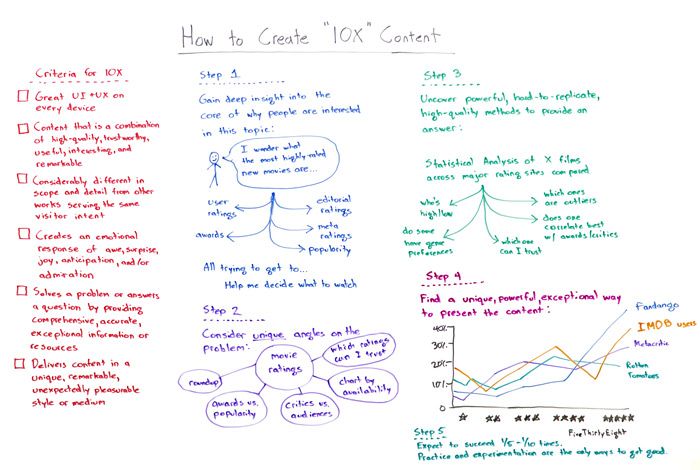 How to Create "10X" Content
Criteria for 10X
Great UI + UX on
every device
Content that is a combination
of high-quality, trustworthy,
useful, interesting, and
remarkable
Considerably different in
scope and detail from other
works serving the same
visitor intent
Creates an emotional
response of awe, surprise,
joy, anticipation, and/or
admiration
Solves a problem or answers
a question by providing
comprehensive, accurate,
exceptional information or
resources
Delivers content in a
unique, remarkable,
unexpectedly pleasurable
style or medium
Step 1
Gain deep insight into the
core of why people are interested
in this topic:
I wonder what
the most highly-rated
new movies are...
user
ratings
editorial
ratings
awards
meta
ratings
popularity
All trying to get to...
Help me decide what to watch
Step 2
Consider unique angles on the
problem:
movie
ratings
which ratings
can I trust
roundup
chart by
availability
awards vs.
popularity
critics vs.
audiences
Step 3
Uncover powerful, hard-to-replicate,
high-quality methods to provide an
answer:
Statistical Analysis of X films
across major rating sites compared
who's
high/low
which ones
are outliers
do some
have genre
preferences
does one
correlate best
w/ awards/critics
which one
can I trust
Step 4
Find a unique, powerful, exceptional way
to present the content:
Fandango
IMDB users
Metacritic
Rotten
Tomatoes
40%
30%
20%
10%
0%
FiveThirtyEight
Step 5
Expect to succeed 1/5 - 1/10 times.
Practice and experimentation are the only ways to get good.